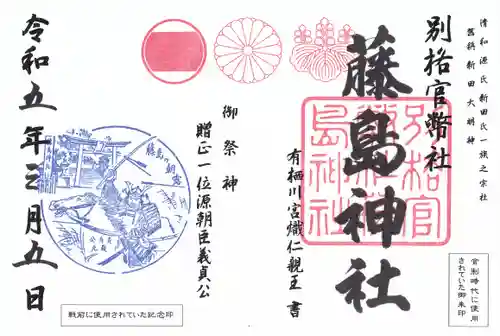 清和源氏新田氏一族之宗社
舊称新田大明神
別格官幣社
藤島神社
別格官
幣社藤
島神社
有栖川宮熾仁親王 書
御祭神
贈正一位源朝臣義貞公
令和五年三月五日
官制時代に使用
されていた御朱印
戦前に使用されていた記念印